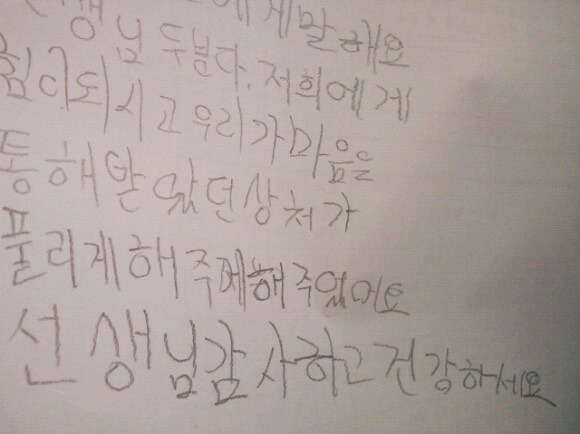 에게말해요
생님 두분다. 저희에게
힘이되시고 우리가마음을
통해받았던상처가
풀리게해주게해주었어요
선생님감사하고건강하세요